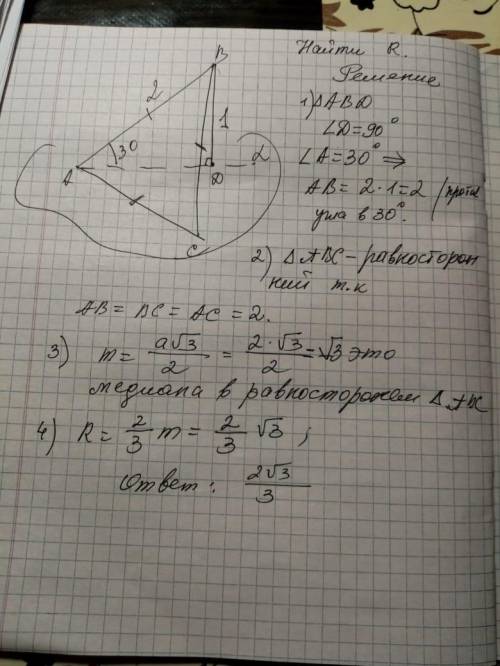 Найти R.
Решение
B
2
1
30
A
D
α
C
1) ΔABD
∠D=90°
∠A=30° ⇒
AB = 2·1=2 / против
угла в 30°.
2) ΔABC – равносторон
ний т.к
AB = BC = AC = 2.
3) m = a√3/2 = 2·√3/2 = √3 это
медиана в равностороннем ΔABC
4) R = 2/3 m = 2/3 √3 ;
Ответ: 2√3/3